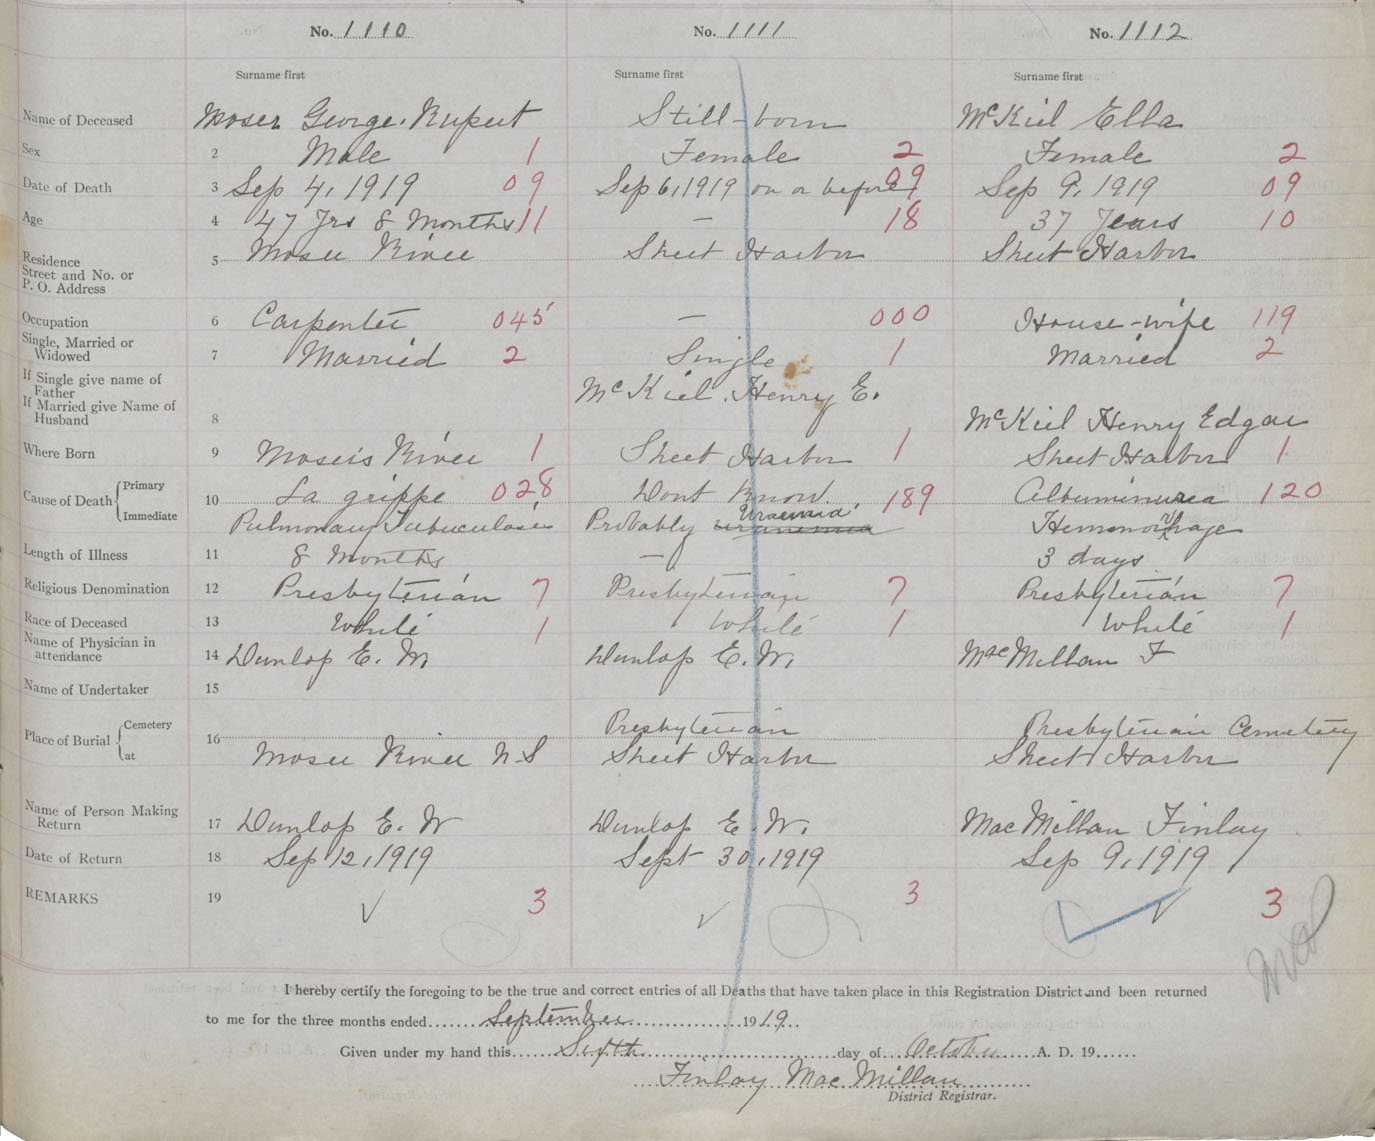 No. 1110 No. 1111 No. 1112
Surname first Surname first Surname first
Name of Deceased Moser George Rupert Still-born McKiel Ella
Sex 2 Male 1 Female 2 Female 2
Date of Death 3 Sep 4, 1919 09 Sep 6, 1919 on or before 09 Sep 9, 1919 09
Age 4 47 Yrs 8 Months 11 — 18 37 Years 10
Residence
Street and No. or
P. O. Address 5 Moser River Sheet Harbor Sheet Harbor
Occupation 6 Carpenter 045 — 000 House-wife 119
Single, Married or
Widowed 7 Married 2 Single 1 Married 2
If Single give name of
Father McKiel, Henry E.
If Married give Name of
Husband 8 McKiel Henry Edgar
Where Born 9 Mosers River 1 Sheet Harbor 1 Sheet Harbor 1
Cause of Death { Primary 10 La grippe 028 Dont Know. 189 Albuminurea 120
Immediate Pulmonary Tubuculosis Probably Uraemia Hemmorhage
Length of Illness 11 8 Months — 3 days
Religious Denomination 12 Presbyterian 7 Presbyterian 7 Presbyterian 7
Race of Deceased 13 White 1 White 1 White 1
Name of Physician in
attendance 14 Dunlop E. W. Dunlop E. W. MacMillan F
Name of Undertaker 15
Place of Burial { Cemetery 16 Presbyterian Presbyterian Cemetery
at Moser River N-S Sheet Harbor Sheet Harbor
Name of Person Making
Return 17 Dunlop E. W Dunlop E. W. MacMillan Finlay
Date of Return 18 Sep 12, 1919 Sept 30, 1919 Sep 9, 1919
REMARKS 19 3 3 3
I hereby certify the foregoing to be the true and correct entries of all Deaths that have taken place in this Registration District and been returned
to me for the three months ended September 1919
Given under my hand this Sixth day of October A. D. 19
Finlay MacMillan
District Registrar.